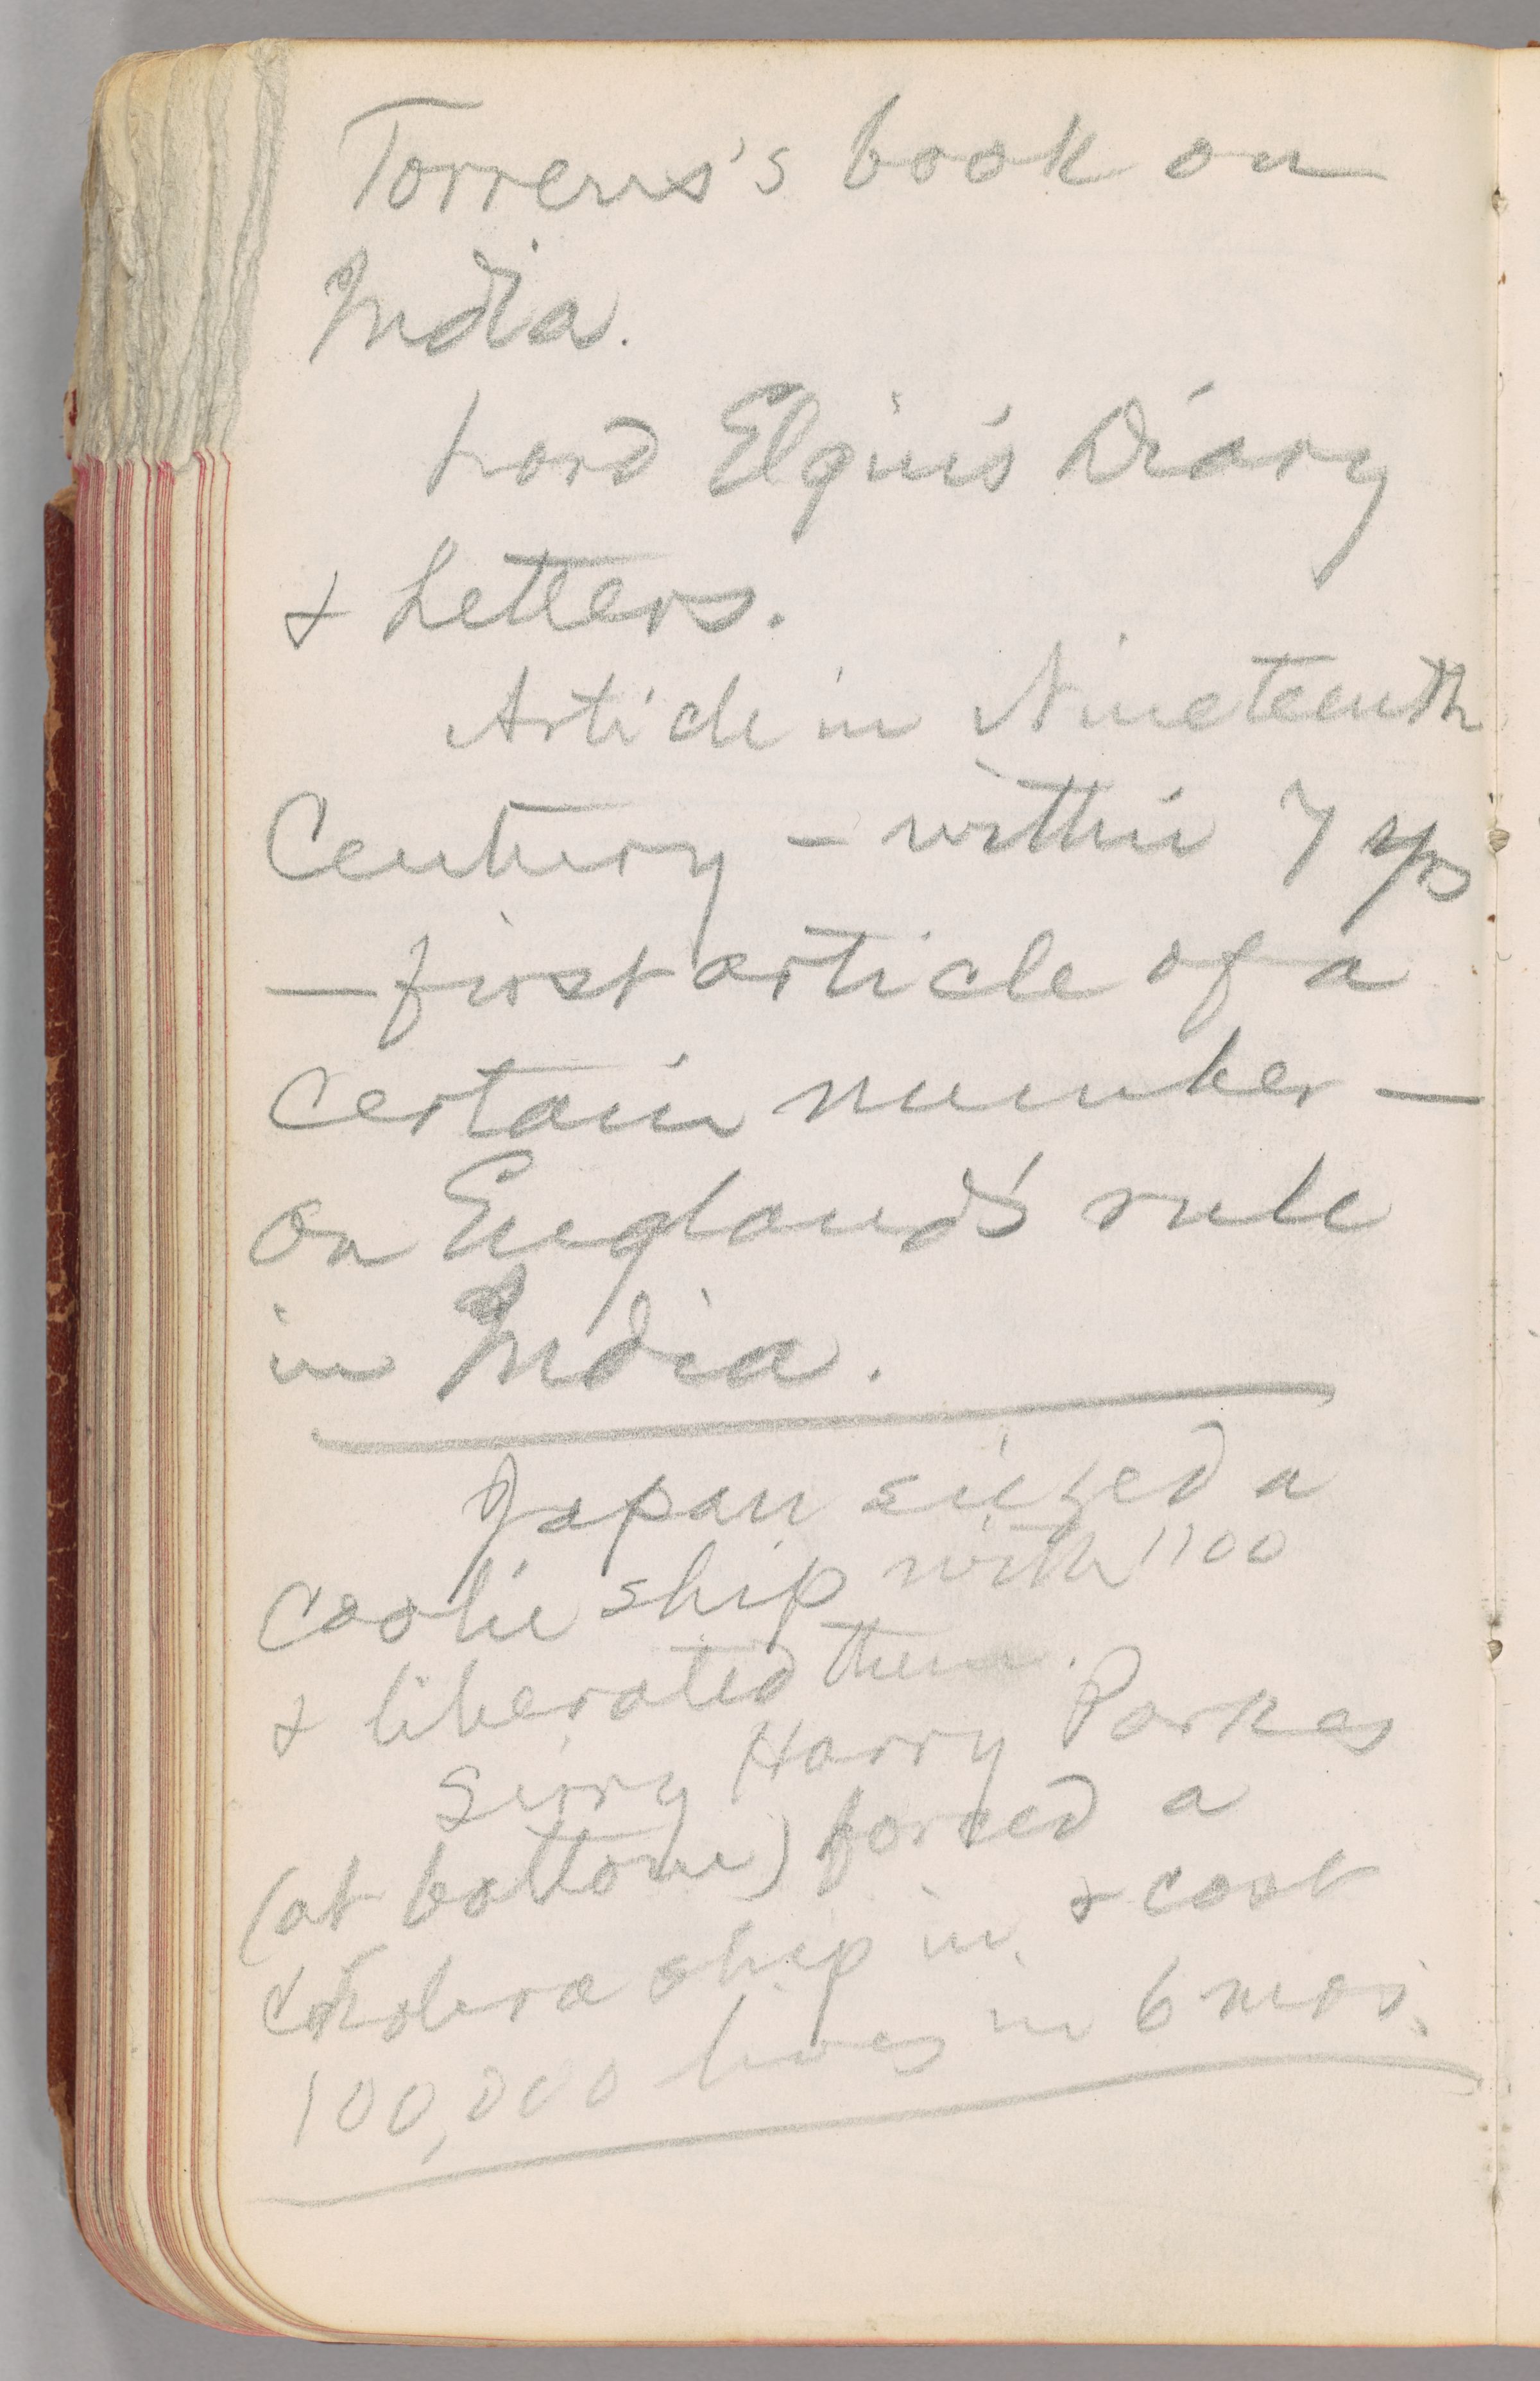 Torrens's book on
India.
Lord Elgin's Diary
& Letters.
Article in Nineteenth
Century – within 7 yrs
— first article of a
certain number —
on England's rule
in India.
Japan siezed a
coolie ship with 1100
& liberated them.
Sirry Harry Parkes
(at bottom) forced a
cholera ship in & cost
100,000 lives in 6 mos.